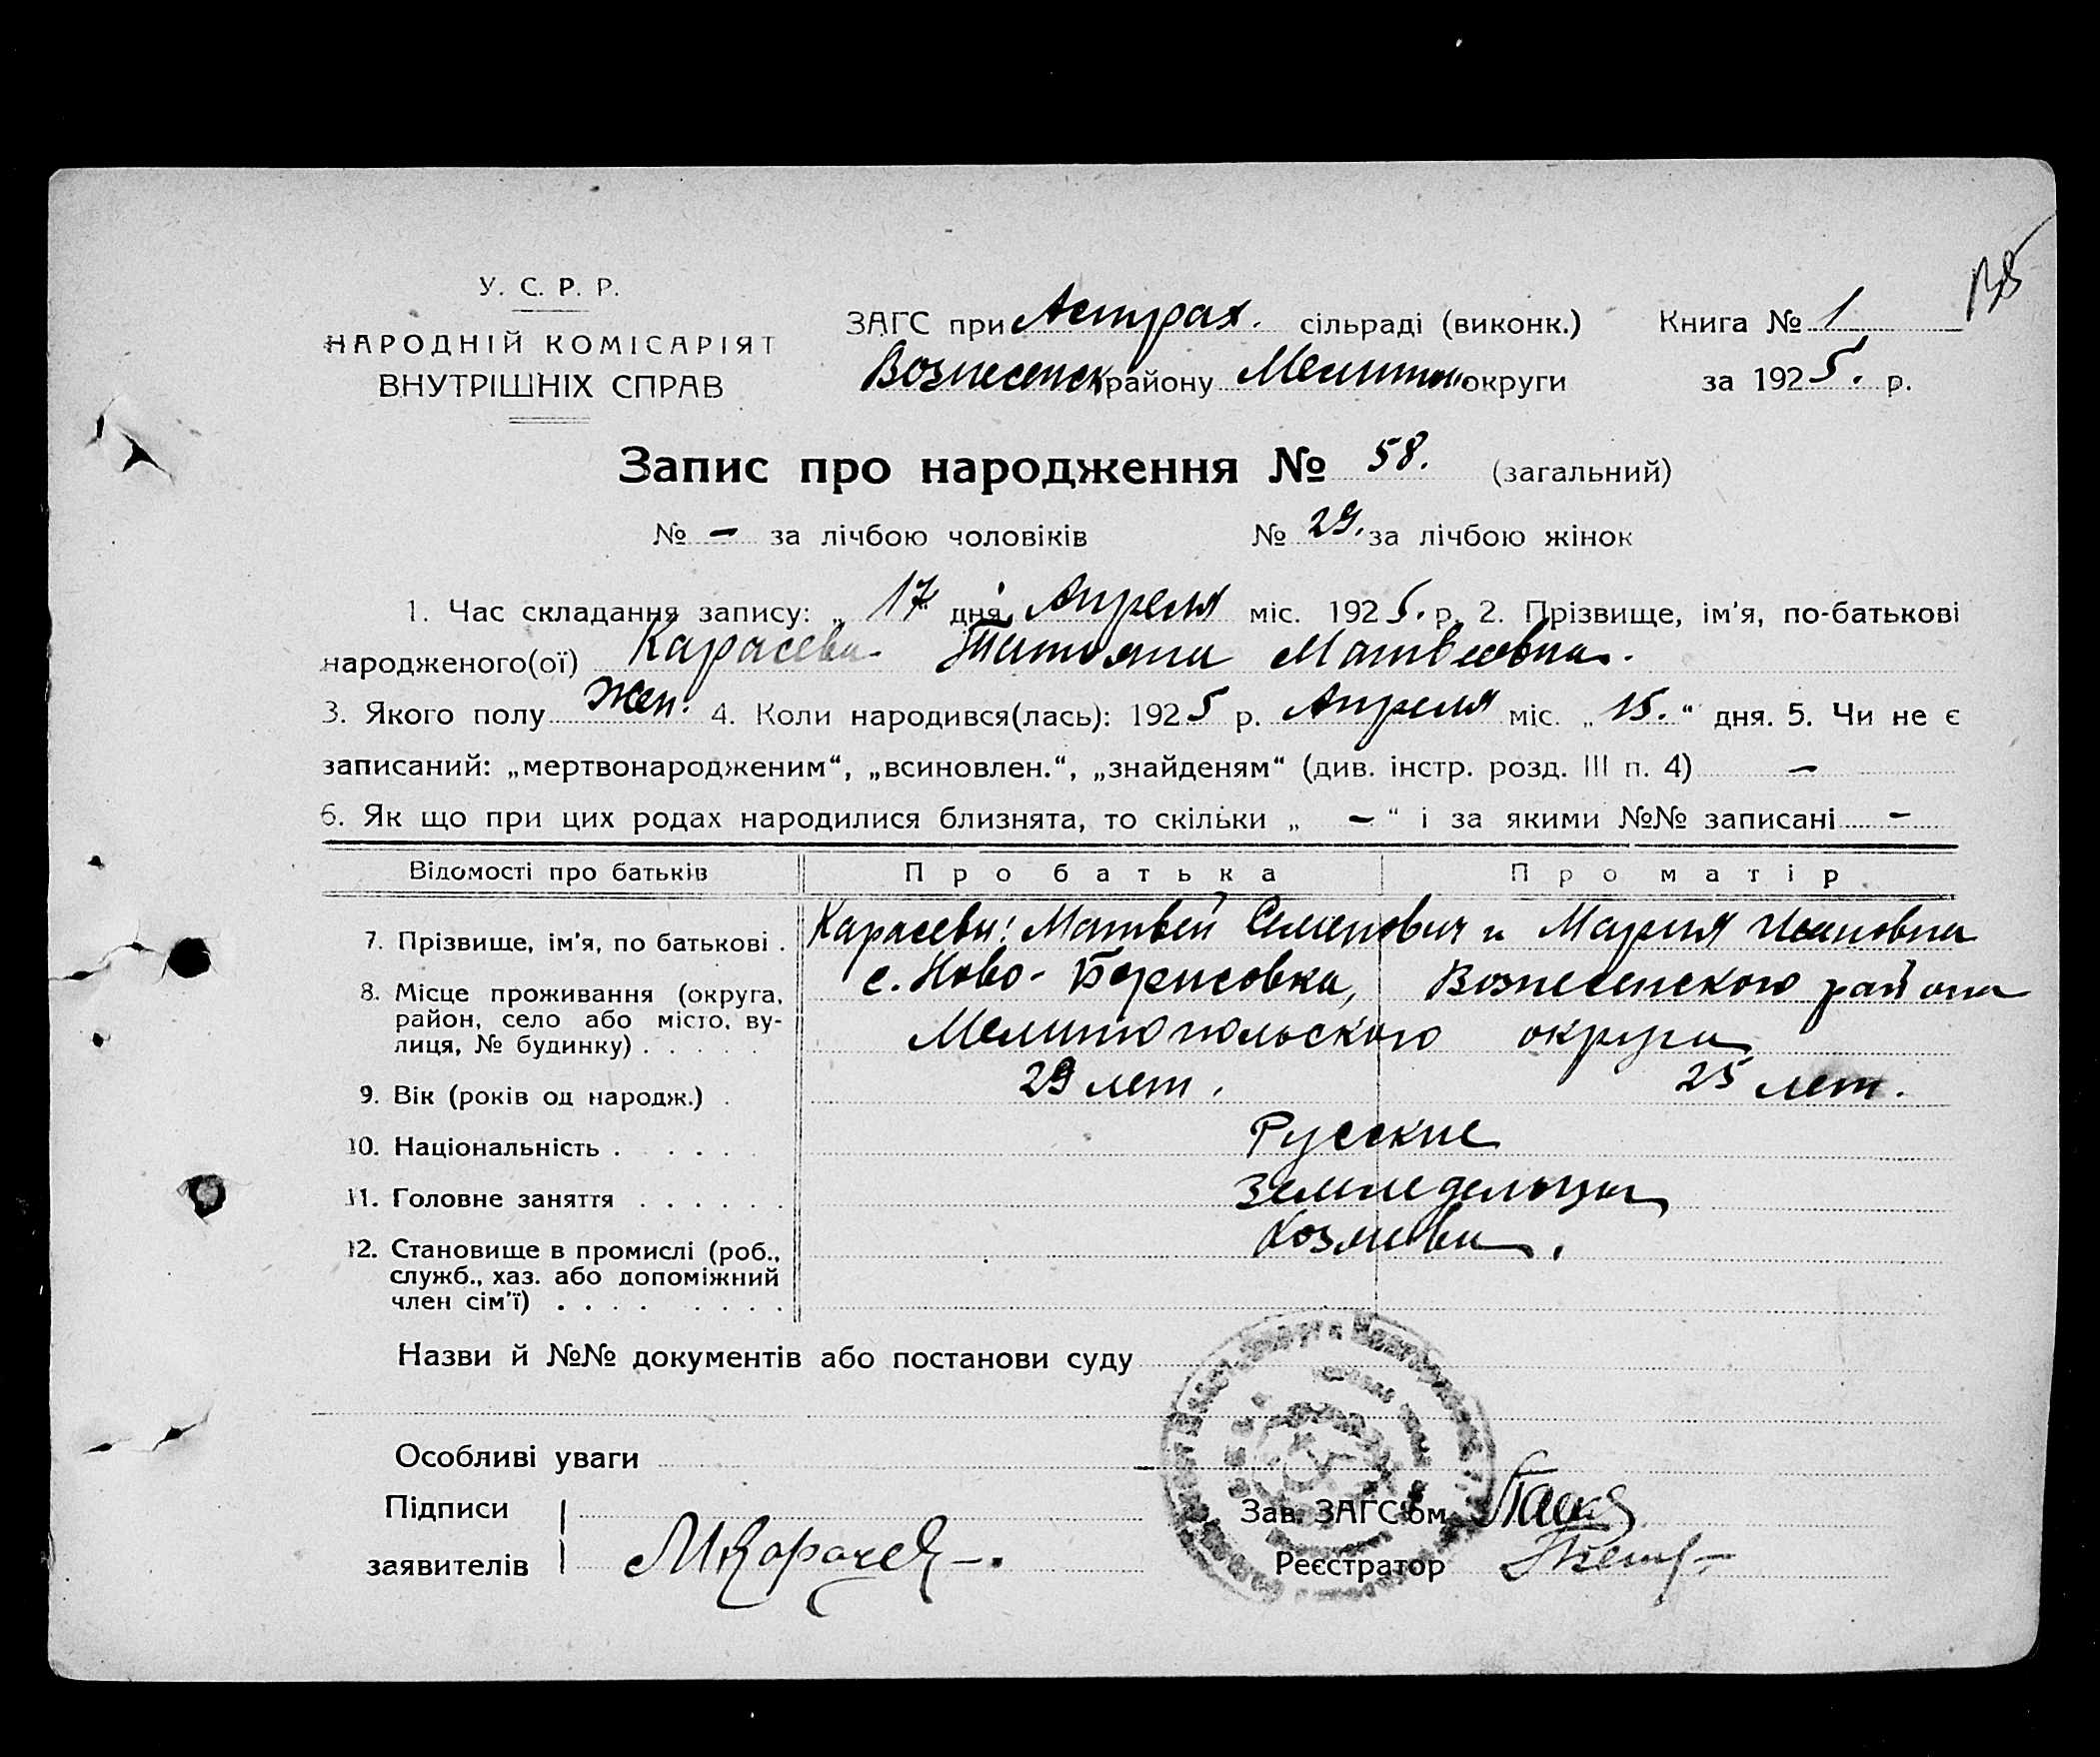 У. С. Р. Р.
НАРОДНІЙ КОМІСАРІЯТ
ВНУТРІШНІХ СПРАВ
ЗАГС при Астрах. сільраді (виконк.) Книга № 1
Вознесенск району Мелитоп. округи за 1925. р.
Запис про народження № 58. (загальний)
№ – за лічбою чоловіків № 29. за лічбою жінок
1. Час складання запису: „ 17 дня Апреля міс. 1925. р. 2. Прізвище, ім'я, по-батькові
народженого(ої) Карасева Татояна Матвеовна.
3. Якого полу Жен. 4. Коли народився(лась): 1925 р. Апреля міс. „ 15. “ дня. 5. Чи не є
записаний: „мертвонародженим“, „всиновлен.“, „знайденям“ (див. інстр. розд. III п. 4) –
6. Як що при цих родах народилися близнята, то скільки „ – “ і за якими №№ записані –
Відомості про батьків Про батька Про матір
7. Прізвище, ім'я, по батькові . Карасевы: Матвей Семенович и Мария Ивановна
8. Місце проживання (округа, с. Ново-Борисовка, Вознесенского района
район, село або місто, ву-
лиця, № будинку) . . . . . Мелитопольского округа
9. Вік (років од народж.) . 29 лет. 25 лет.
10. Національність . . . . . . Русские
11. Головне заняття . . . . . . Земледельцы
12. Становище в промислі (роб., Хозяева.
служб., хаз. або допоміжний
член сім'ї) . . . . . . . .
Назви й №№ документів або постанови суду
Особливі уваги
Підписи
Зав. ЗАГС'ом
заявителів М Карасев
Реєстратор